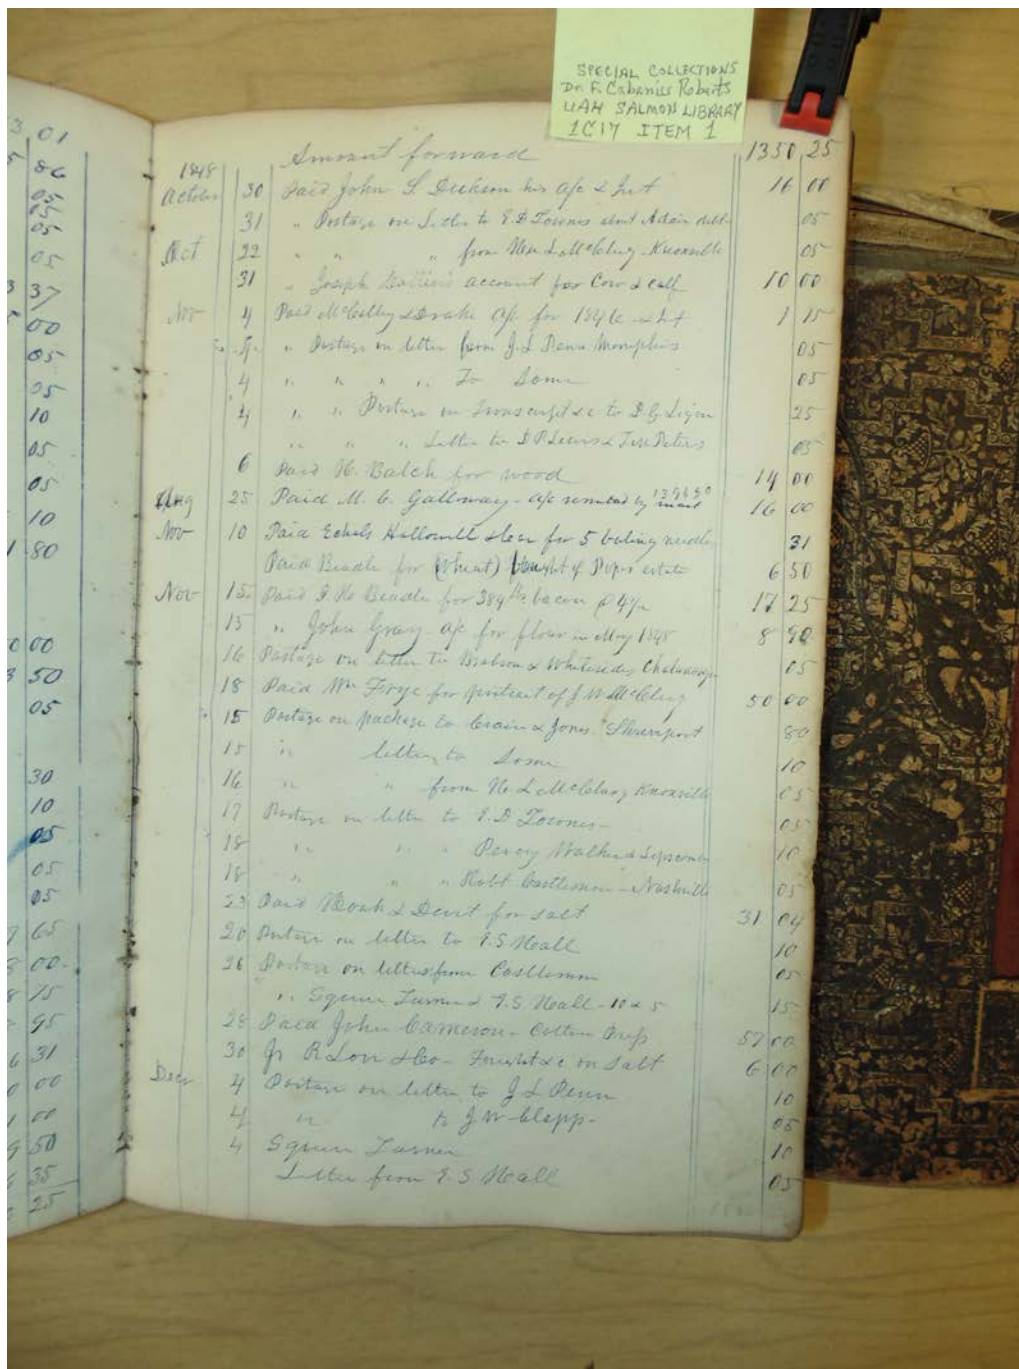 SPECIAL COLLECTIONS
Dr. F. Cabaniss Roberts
UAH SALMON LIBRARY
1C17 ITEM 1
01
86
05
05
05
05
37
00
05
05
10
05
05
10
80
00
50
05
30
10
05
05
05
65
00
75
95
31
00
00
50
35
25
Amount forward 1350 25
1848
October 30 Paid John S. Dickson his a/c & Int 16 00
31 " Postage on Letter to E D Townes about Adair debt 05
Oct 22 " " " from L McClung Knoxville 05
31 " Joseph account for Cow & calf 10 00
Nov 4 Paid McCalley & Drake a/c for 1846 & Int 1 15
" Postage on letter from J. L Penn Memphis 05
4 " " " " To Same 05
4 " " Postage on Transcript &c to D. G. Ligon 25
" " " Letter to D P Lewis & Peters 05
6 Paid H. Balch for wood 14 00
Aug 25 Paid M. C. Galloway - a/c remitted by mail 16 00
Nov 10 Paid Echols Hallowell & for 5 baling needles 31
Paid Beadle for (wheat) bought of Pope's estate 6 50
Nov 15 Paid Beadle for 389 lbs bacon @ 17 25
15 " John Gray a/c for flour in May 1848 8 90
16 Postage on letter to & Whitesides 05
18 Paid Wm Frye for portrait of J. W. McClung 50 00
15 Postage on package to Crain & Jones Shreveport 80
15 " letter to Same 10
16 " " from McClung Knoxville 05
17 Postage on letter to E. D Townes - 05
18 " " " Percy Walker & Lipscomb 10
18 " " " Robt Castleman - Nashville 05
23 Paid & for salt 31 04
20 Postage on letter to 10
26 Postage on letter from Castleman 05
" Squire Turner & - 10 & 5 15
28 Paid John Cameron - Cotton 57 00
30 & Co - Freight &c on Salt 6 00
Decr 4 Postage on letter to J L Penn 10
4 " to J. W. Clapp - 05
4 Squire Turner 10
Letter from 05